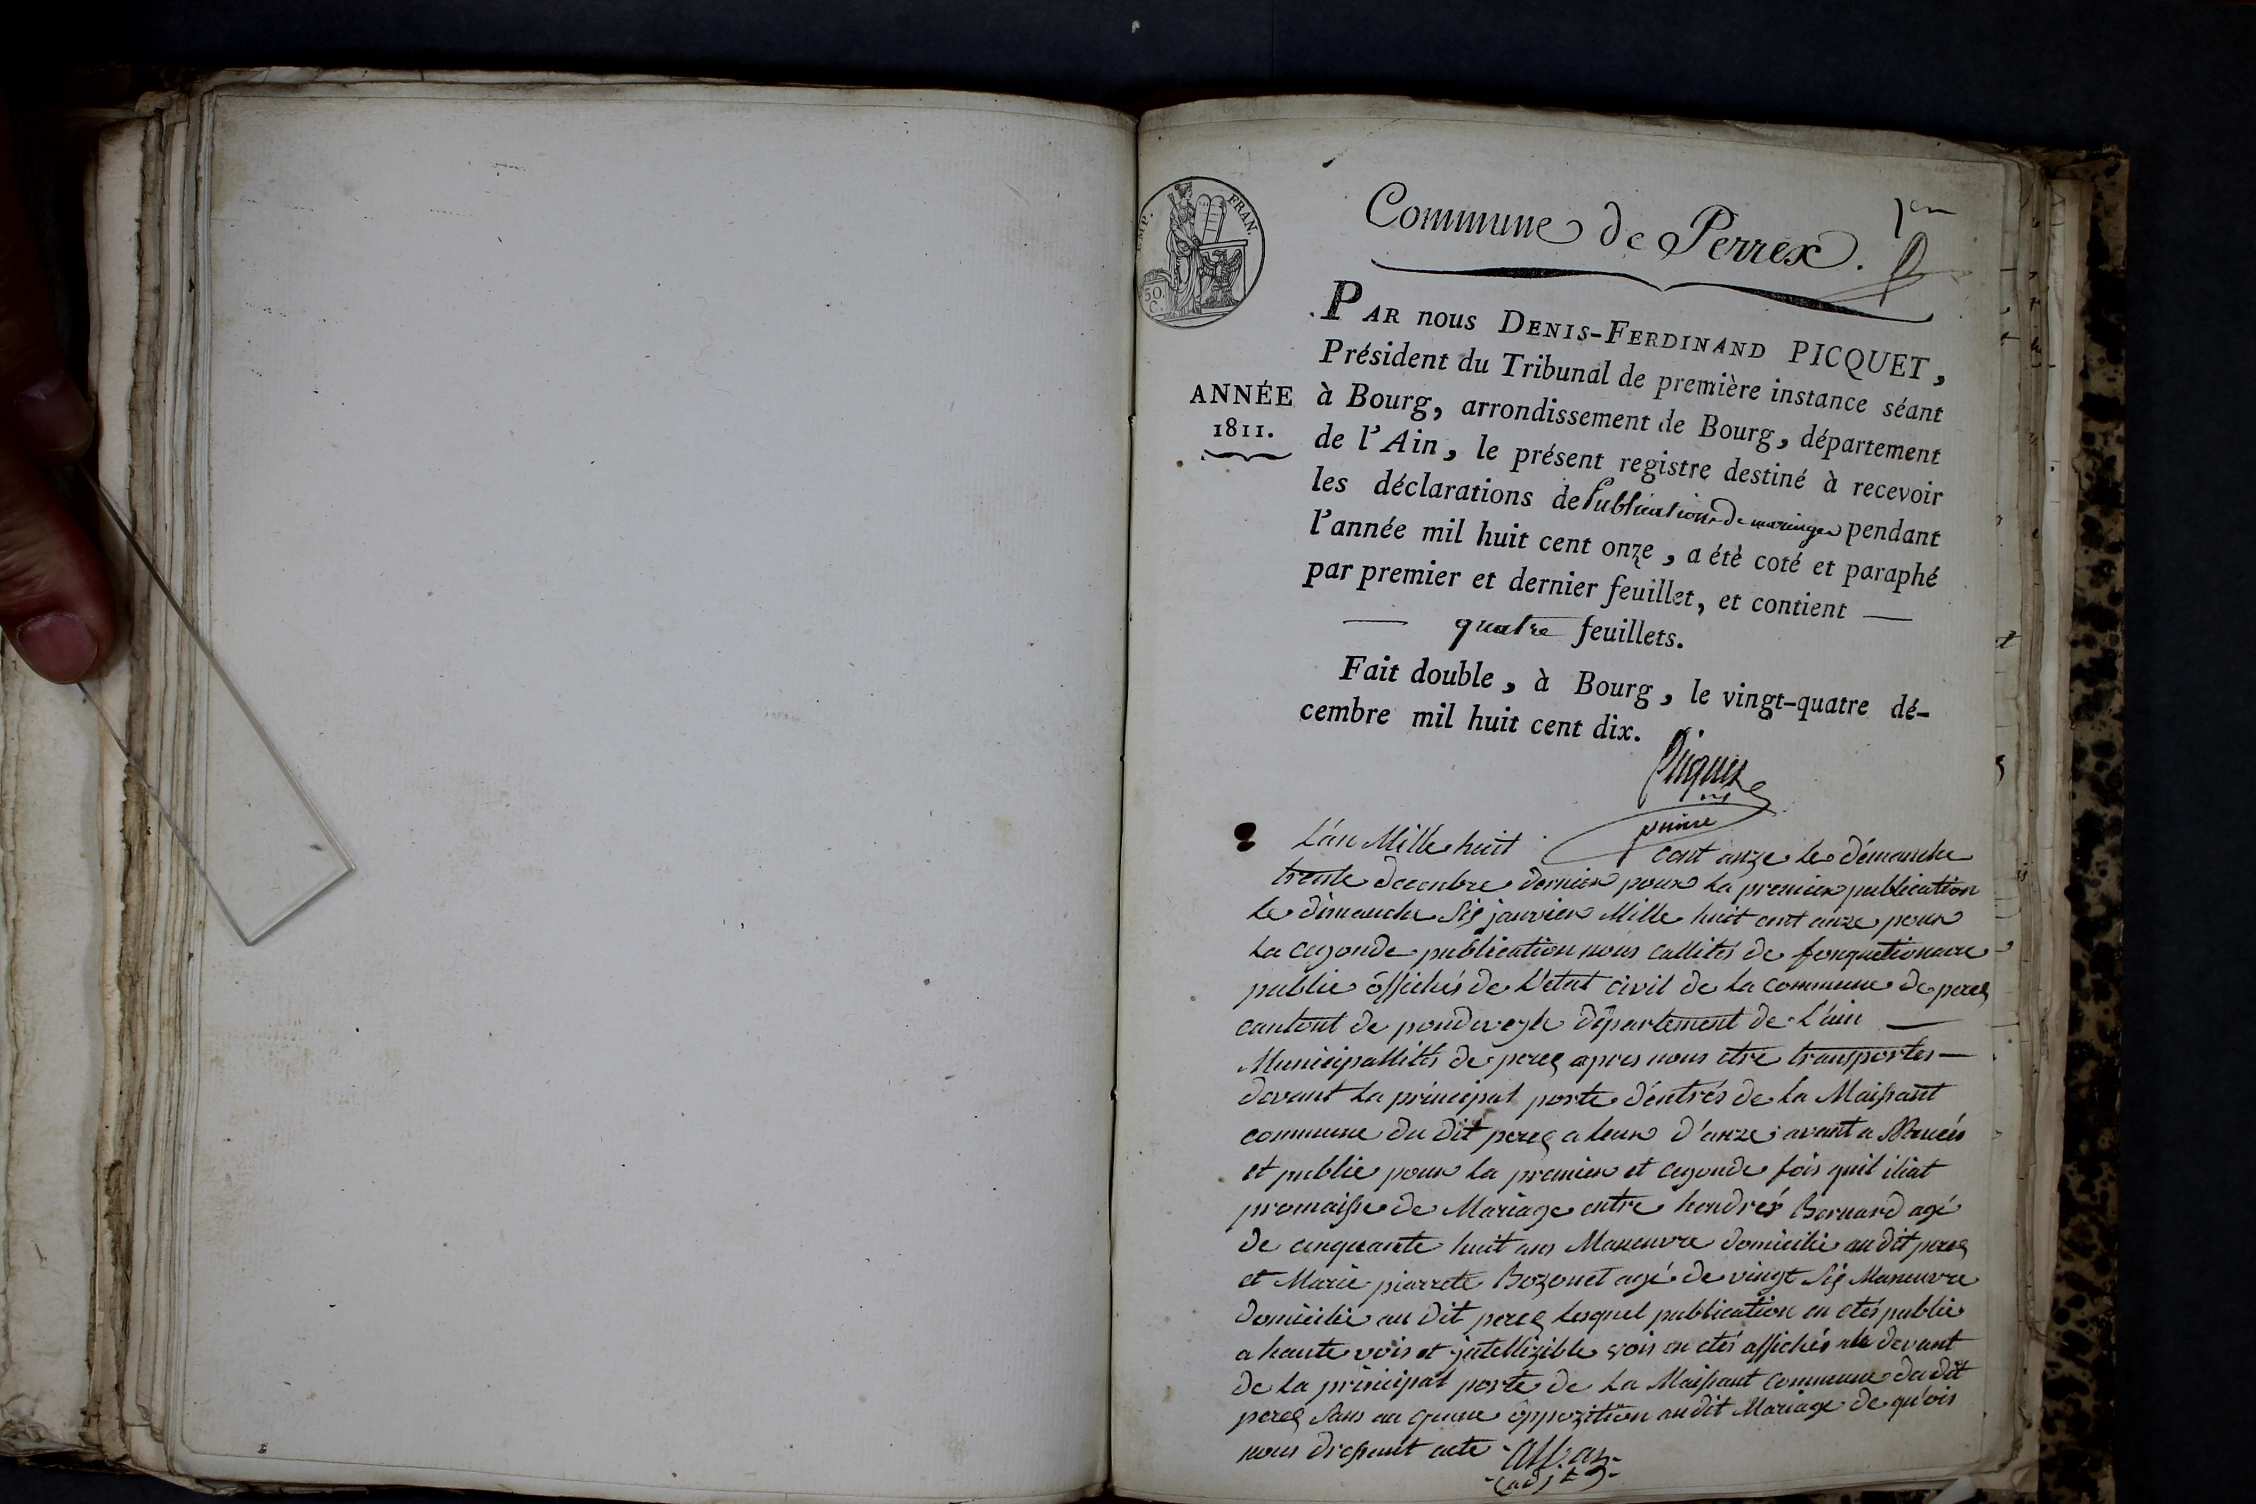 EMP. FRAN.
50.
C.
1er
Commune de Perrex.
PAR nous DENIS-FERDINAND PICQUET,
Président du Tribunal de première instance séant
ANNÉE
1811.
à Bourg, arrondissement de Bourg, département
de l'Ain, le présent registre destiné à recevoir
les déclarations de Publications de mariages pendant
l'année mil huit cent onze, a été coté et paraphé
par premier et dernier feuillet, et contient —
— quatre feuillets.
Fait double, à Bourg, le vingt-quatre dé-
cembre mil huit cent dix.
Picquet
L'an Mille huit cent onze le démanche
trente decembre dernier pour la premier publication
le dimanche Six janvier Mille huit cent onze pour
la cegonde publication nous callités de fonquetionaire
publie offichés de L'état civil de la commune de perex
cantont de pondeveyle département de L'ain —
Municipallités de perex apres nous etre transportes —
devant la principal porte d'entrés de la Maisant
commune du dit perex a leur d'onze avant
et publie pour la premier et cegonde fois quil iliat
promaisse de Mariage entre hendrés Bernard agé
de cinquante huit ans Maneuvre domicilie au dit perex
et Marie piarrete Bozonet agé de vingt Six Maneuvre
domicilie au dit perex lesquel publication en etés publie
a haute vois et jntellizible vois en etés affichés devant
de la principal porte de la Maisant commune du dit
perex Sans au qunne oppozition audit Mariage de qu'ois
nous dressant acte
adjt